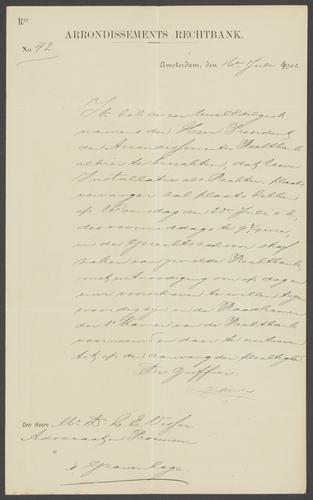 Rzz
ARRONDISSEMENTS RECHTBANK.
No 42
Amsterdam, den 16en Juli 1902
Ik heb de eer UwelEdelgestr
namens den Heer President
der Arrondissements Rechtbank
alhier te berichten, dat Uwe
Installatie als Rechter plaats
vervanger zal plaats hebben
op Woensdag den 23en Juli a.s.
des voormiddags te 9½ ure,
in de Gerechtszaal voor straf
zaken van gemelde Rechtbank,
met uitnoodiging om op dag en
uur voorschreven te willen tegen
woordig zijn in de Raadkamer
der 1e Kamer van de Rechtbank
voornoemd en daar te
tot op de aanvang der plechtigheid
De Griffier
Den Heere Mr. L. E. Visser
Advocaat en Procureur
's Gravenhage